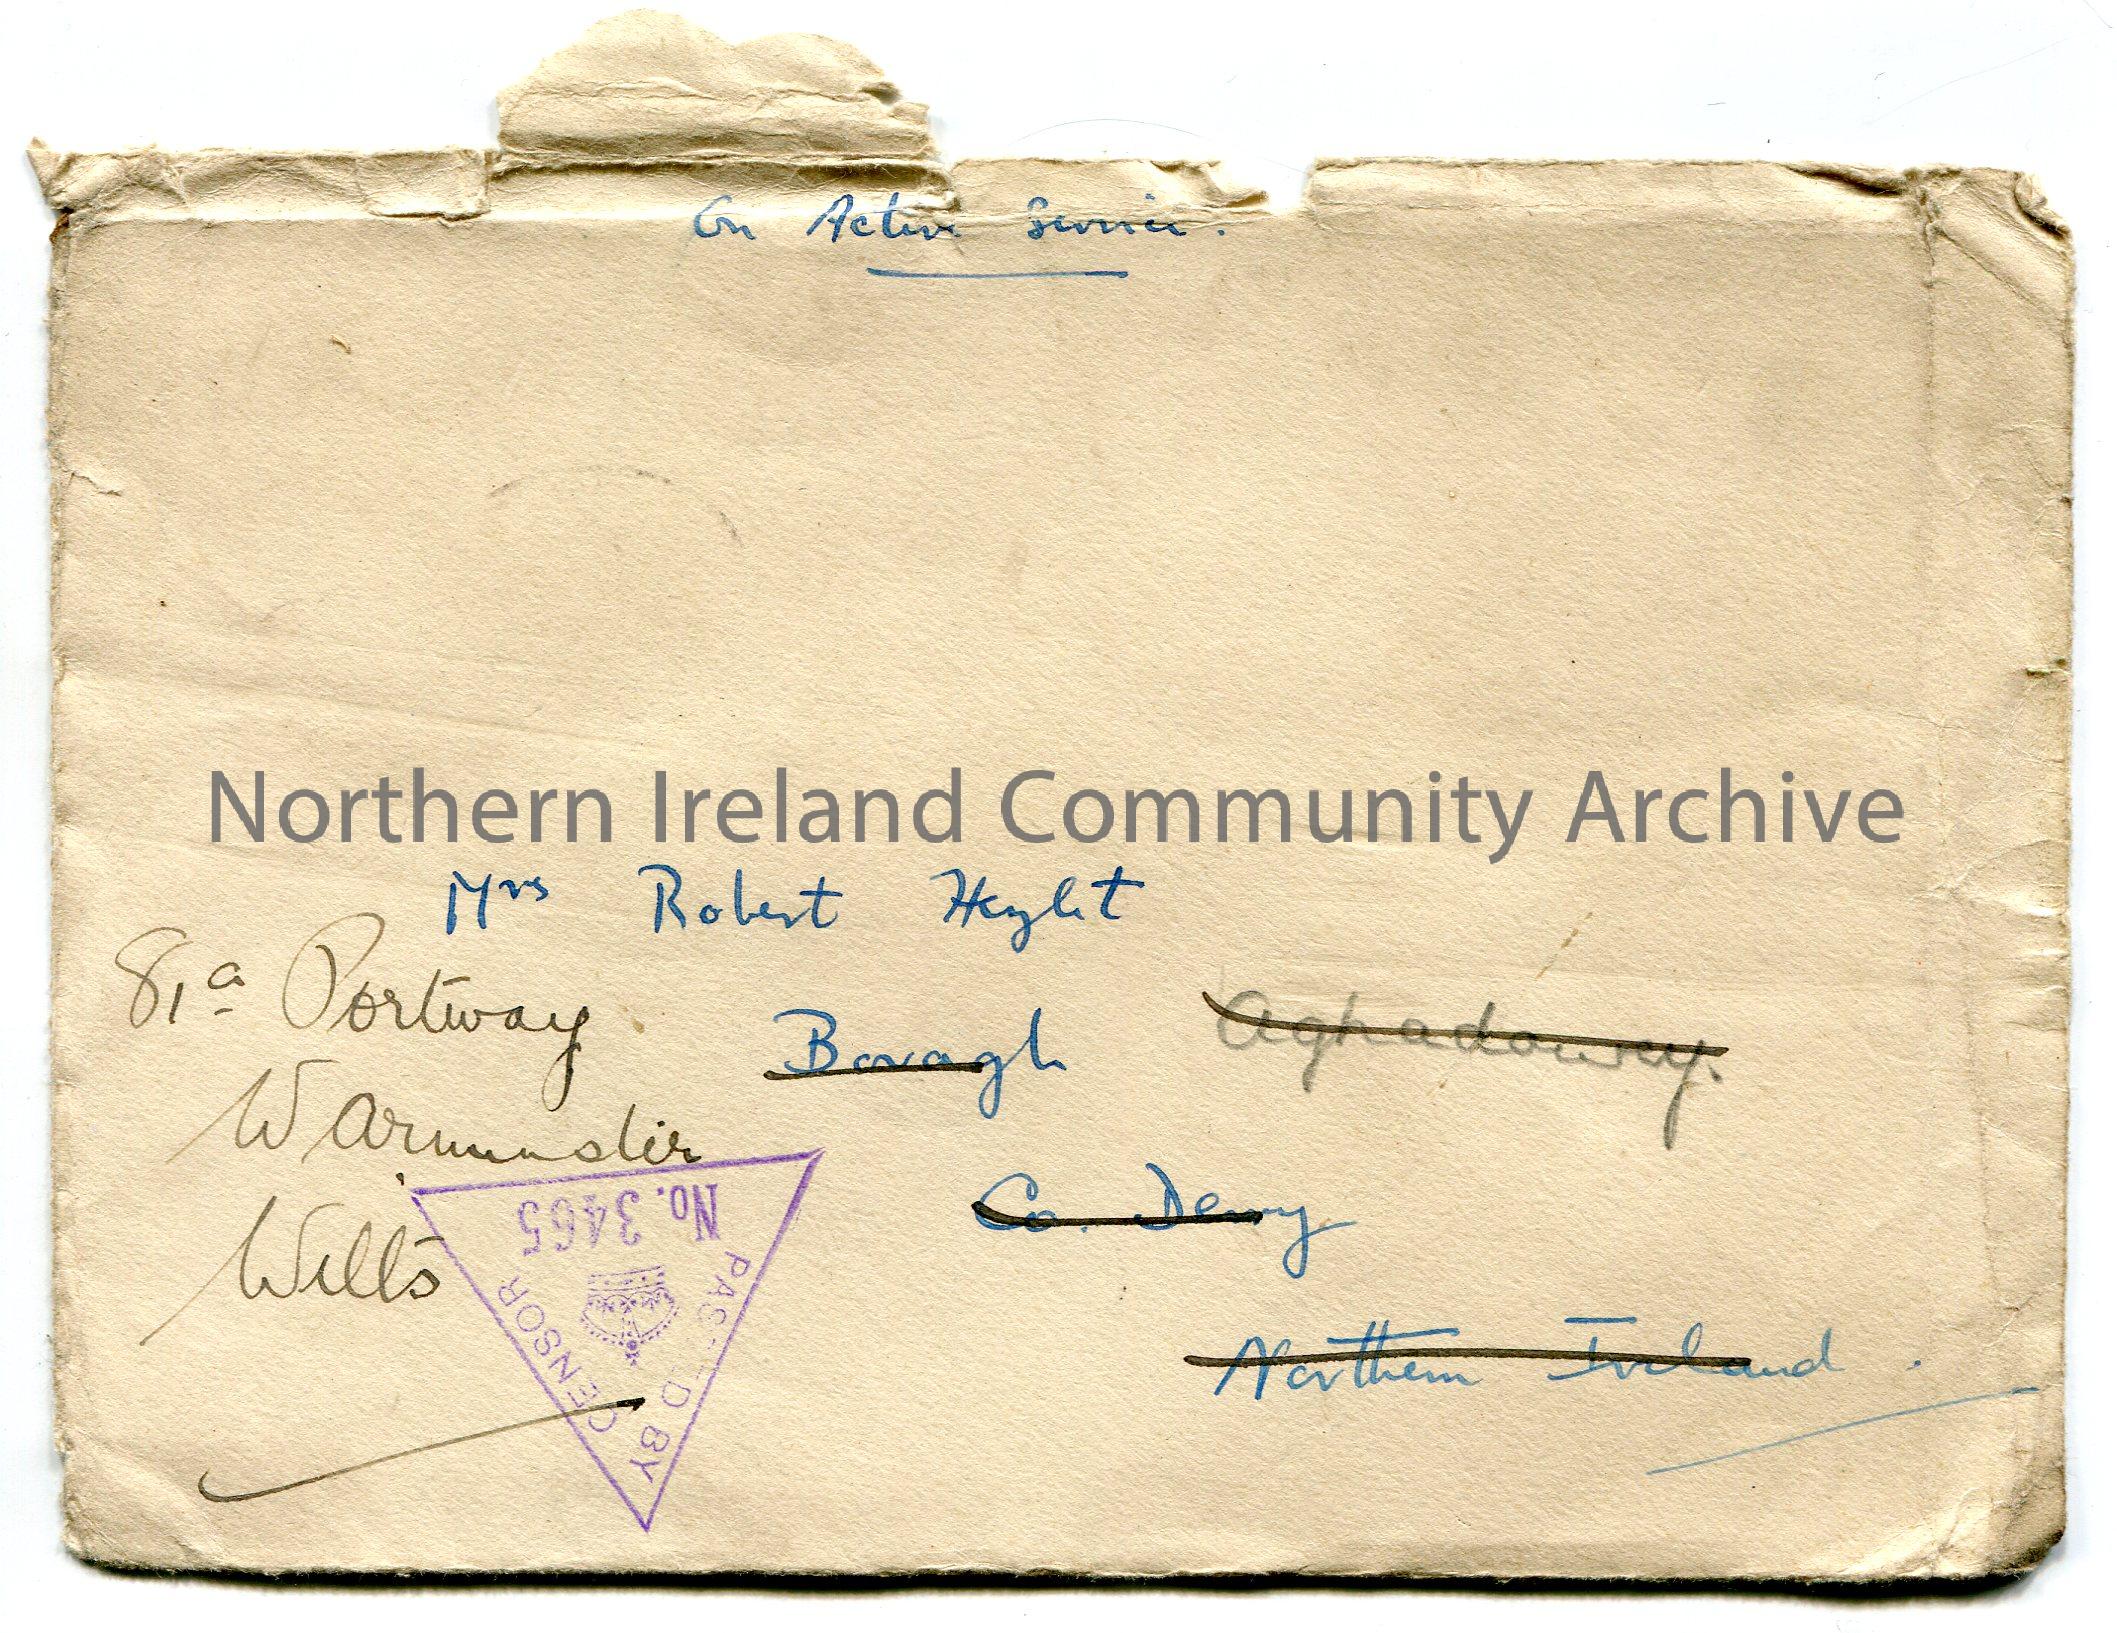 On Active Service.
Northern Ireland Community Archive
Mrs Robert Heylit
81a Portway
Bovagh Aghadowey.
Warminster
Co. Derry
Wilts
Northern Ireland.
No. 3465
PASSED BY CENSOR